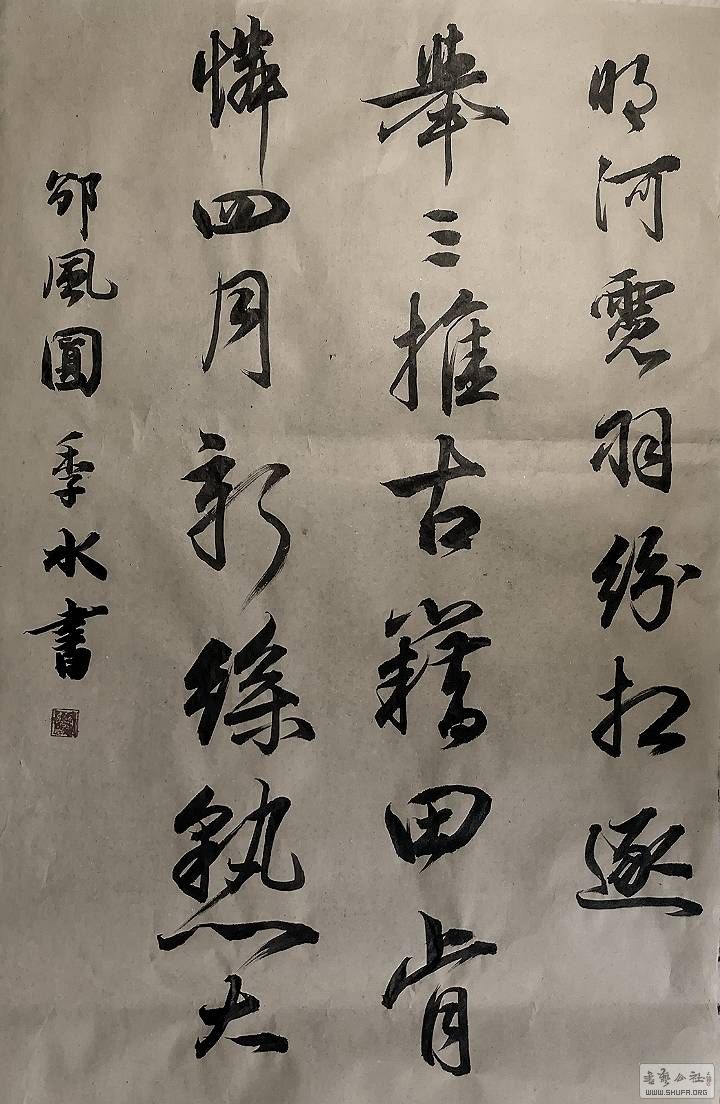 明河霓羽紛相逐
舉三推古籍田肯
憐四月新絲熟大
邠風圖 季水書
书艺公社
WWW.SHUFA.ORG